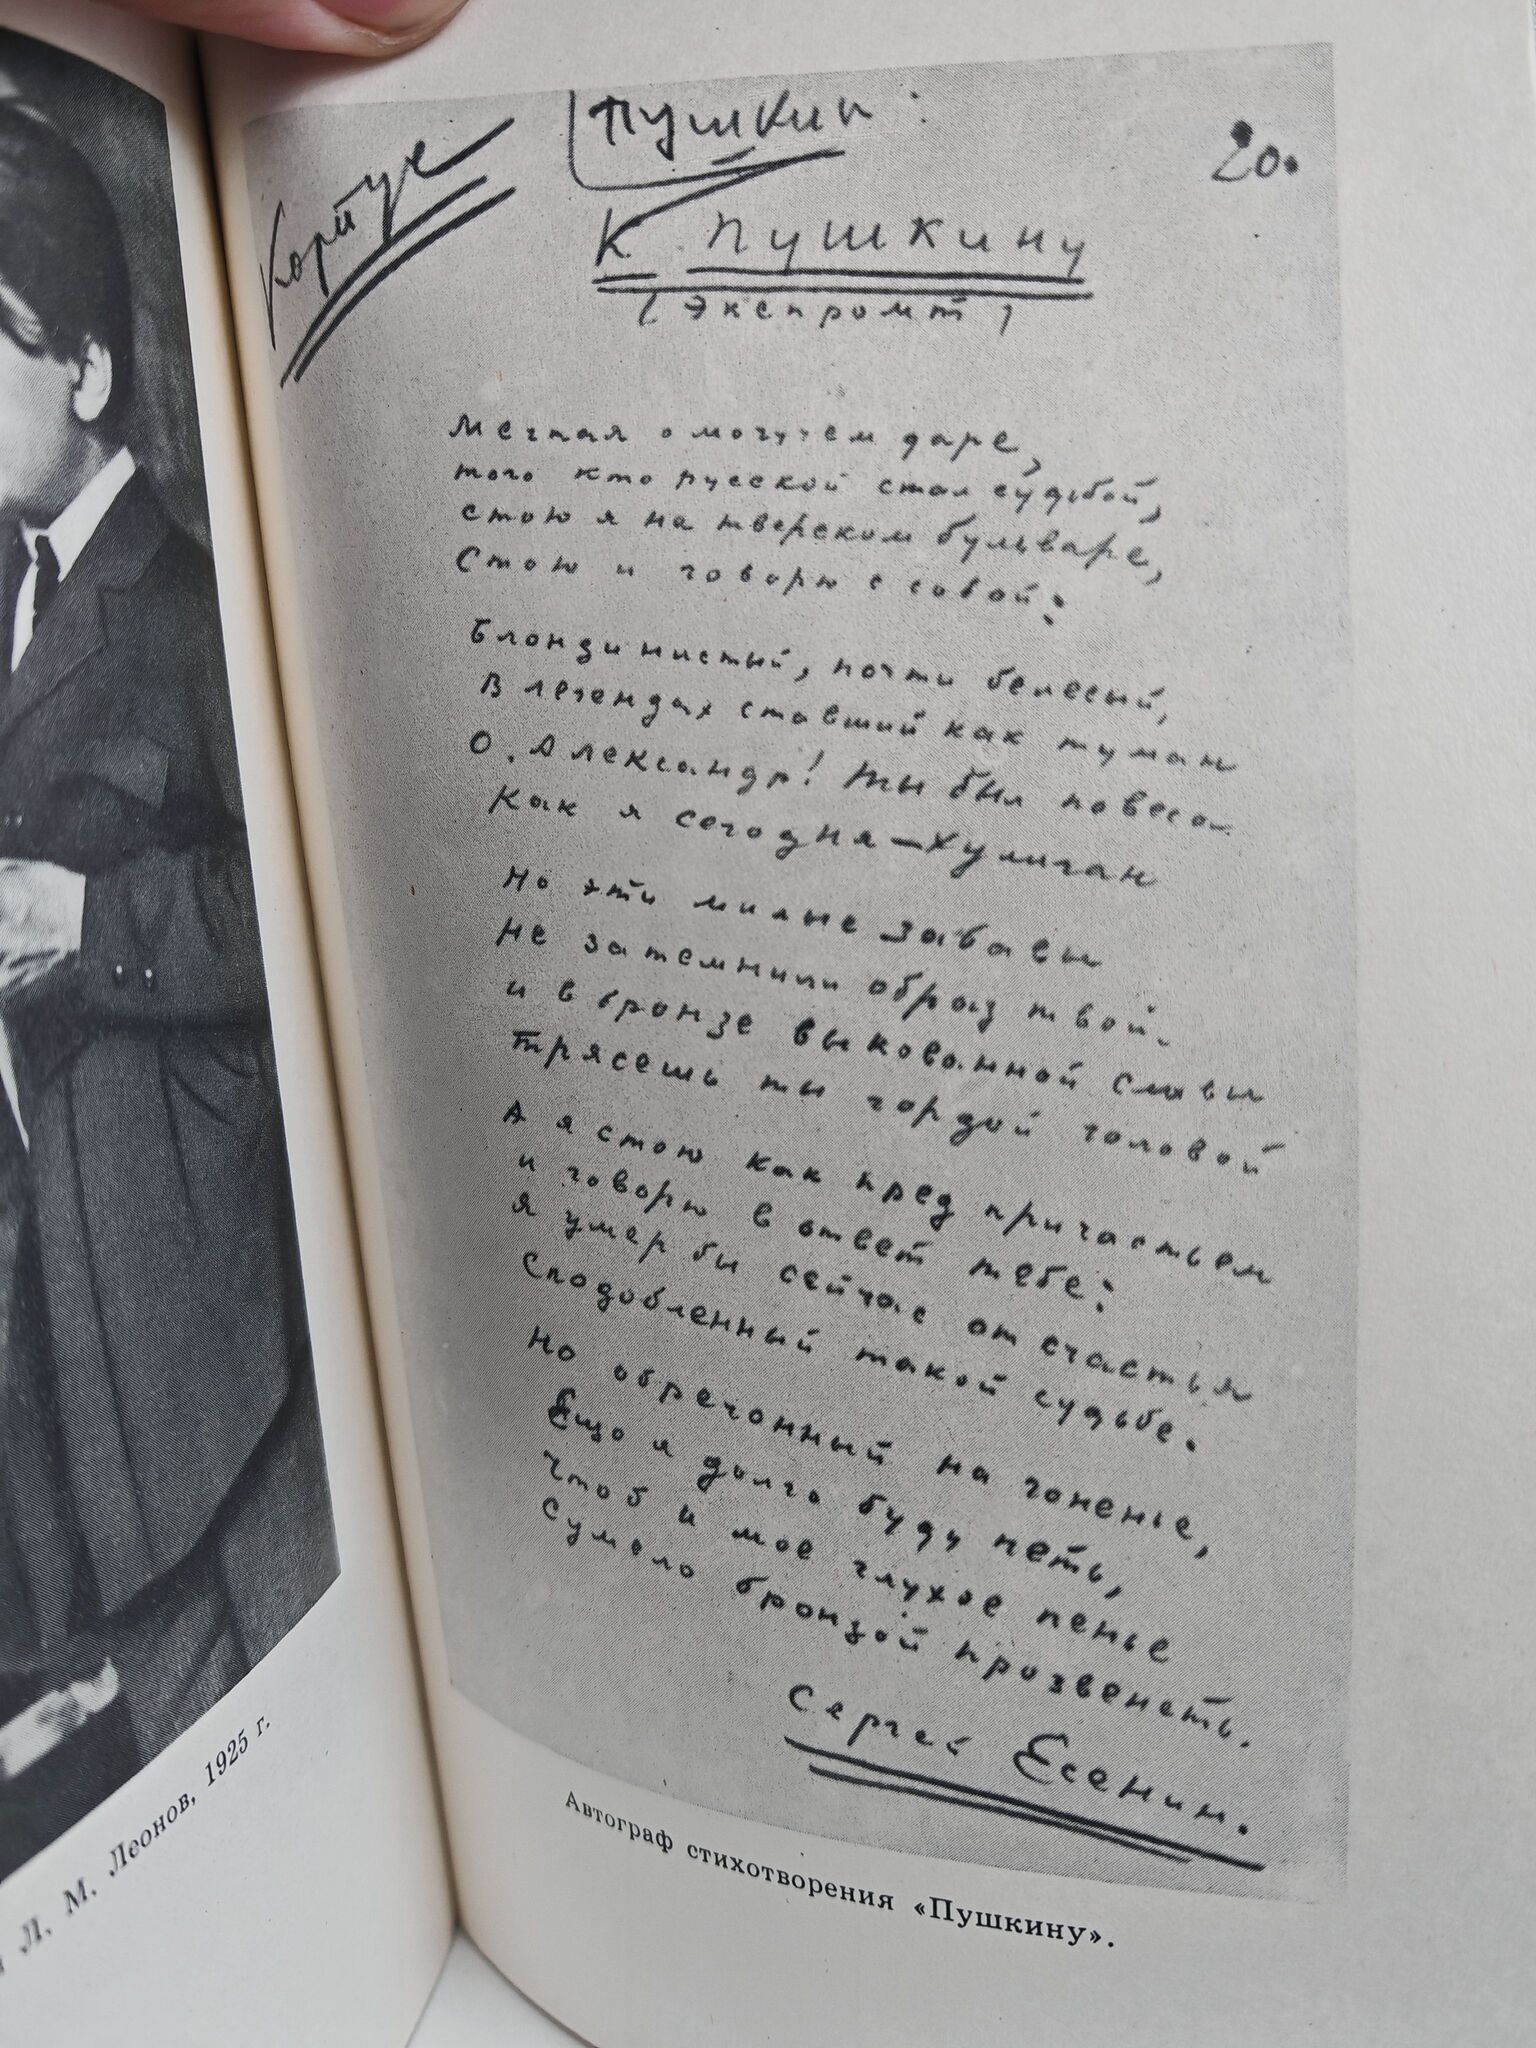 Л. М. Леонов, 1925 г.
Корпус
Пушкин:
20.
К Пушкину
(Экспромт)
Мечтая о могучем даре,
того кто русской стал судьбой,
стою я на тверском бульваре,
Стою и говорю с собой:
Блондинистый, почти белесый,
В легендах ставший как туман
О. Александр! Ты был повеса
Как я сегодня – хулиган
Но эти милые забавы
Не затемнили образ твой
и в бронзе выкованной славы
Трясешь ты гордой головой
А я стою как пред причастьем
и говорю в ответ тебе:
я умер бы сейчас от счастья
Сподобленный такой судьбе.
Но обречонный на гоненье,
Ещо я долго буду петь,
Чтоб и мое глухое пенье
Сумело бронзой прозвенеть.
Сергей Есенин.
Автограф стихотворения «Пушкину».